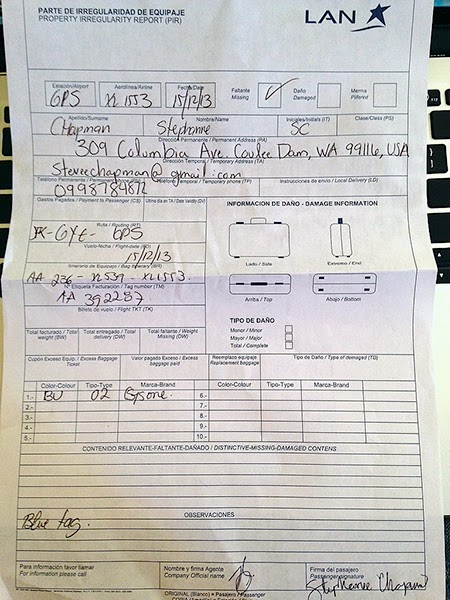 PARTE DE IRREGULARIDAD DE EQUIPAJE
PROPERTY IRREGULARITY REPORT (PIR)
LAN
Estación/Airport Aerolínea/Airline Fecha/Date
GPS XL1553 15/12/13
Faltante Missing Daño Damaged Merma Pilfered
Apellido/Surname Nombre/Name Iniciales/Initials (IT) Clase/Class (PS)
Chapman Stephanie SC
Dirección Permanente / Permanent Address (PA)
309 Columbia Ave Coulee Dam, WA 99116, USA
Dirección Temporal / Temporary Address (TA)
steveechapman@gmail.com
Teléfono Temporal / Temporary phone (TP) Instrucciones de envío / Local Delivery (LD)
0998784872
Gastos Pagados / Payment to Passenger (CS)
INFORMACION DE DAÑO - DAMAGE INFORMATION
Ruta / Routing (RT)
GYE - GPS
Vuelo-fecha / Flight-date (FD)
15/12/13
Lado / Side Extremo / End
Itinerario de Equipaje / Bag Itinerary (BR)
AA 236 - XL539 - XL1553
Nº Etiqueta Facturación / Tag number (TN)
AA 392287
Arriba / Top Abajo / Bottom
Billete de vuelo / Flight TKT (TK)
TIPO DE DAÑO
Menor / Minor
Mayor / Major
Total / Complete
Total facturado / Total weight (BW) Total entregado / Total delivery (DW) Total faltante / Missing Weight (DW)
Cupón Exceso Equip. / Excess Baggage Ticket Valor pagado Exceso / Excess baggage paid Reemplazo equipaje Replacement baggage Tipo de Daño / Type of damaged (TD)
Color-Colour Tipo-Type Marca-Brand Color-Colour Tipo-Type Marca-Brand
1.- BU 02 6.-
2.- 7.-
3.- 8.-
4.- 9.-
5.- 10.-
CONTENIDO RELEVANTE-FALTANTE-DAÑADO / DISTINCTIVE-MISSING-DAMAGED CONTENS
OBSERVACIONES
Blue tag.
Para información favor llamar
For information please call
Nombre y firma Agente
Company Official name
Firma del pasajero
Passenger signature
Stephanie Chapman
ORIGINAL (Blanco) = Pasajero / Passenger